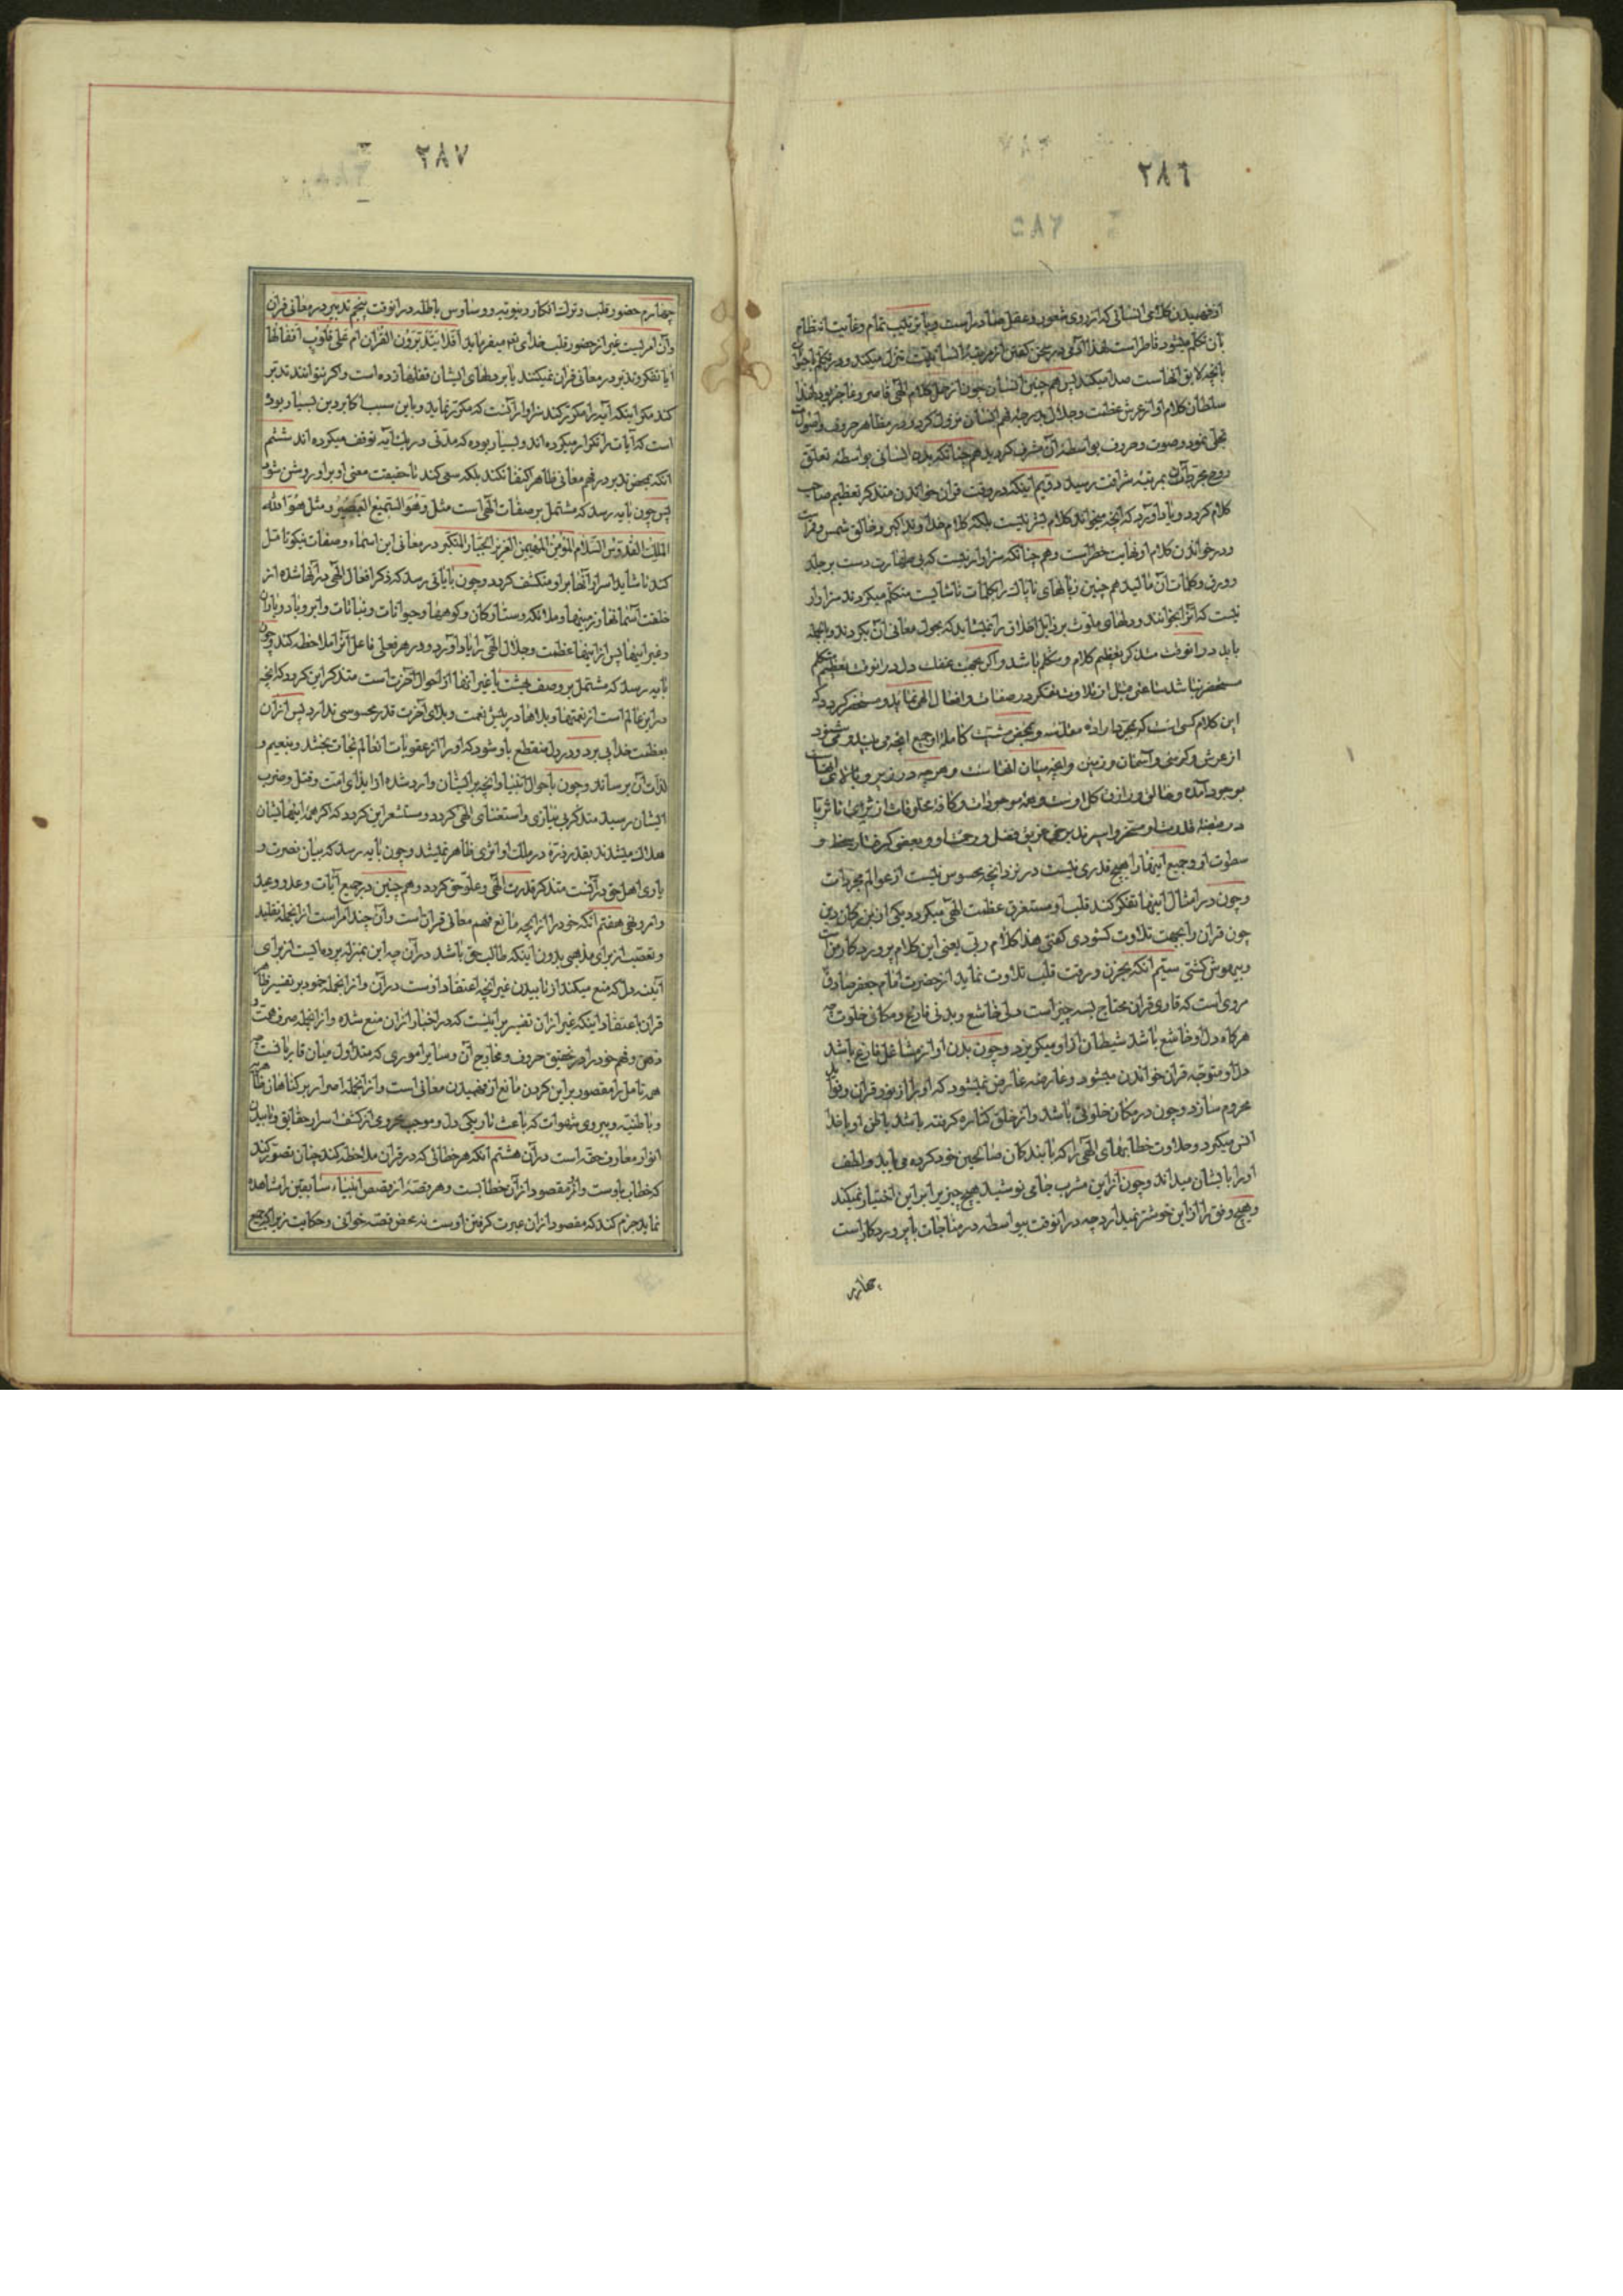 ٢٨٦
٢٨٥
از فهمیدن کلامی انسانی که از روی شعور و عقل صادر است و باین ترکیب تمام و غایت انتظام
بان تکلم میشود قاصر است لهذا آدمی در سخن گفتن از مرتبه انسانیت تنزل میکند و در تکلم با حیوان
بانچه لایق انهاست صدا میکند پس هم چنین انسان چون از حمل کلام الهی قاصر و عاجز بود لهذا
سلطان کلام او از عرش عظمت و جلال بدرجه فهم انسان نزول کرد و در مظاهر حروف و اصوات
تجلی نمود و صوت و حروف بواسطه آن مشرف کردید هم چنانکه بدن انسانی بواسطه تعلق
روح مجرد بآن بمرتبه شرافت رسید دویم اینکه در وقت قران خواندن متذکر تعظیم صاحب
کلام کردد و یاد آورد که انچه میخواند کلام بشر نیست بلکه کلام خداوند اکبر و خالق شمس و قمر است
و در خواندن کلام او نهایت خطر است و هم چنانکه سزاوار نیست که بی طهارت دست بر جلد
و ورق و کلمات آن مالید هم چنین زبانهای ناپاک را بکلمات ناشایست متکلم میکردند سزاوار
نیست که آنرا بخوانند و دلهای ملوث برذایل اخلاق را نمیشاید که بحول معانی آن بکردند و بالجمله
باید در انوقت متذکر تعظیم کلام و متکلم باشد و اکر بجهت غفلت دل در انوقت تعظیم متکلم
مستحضر نباشد ساعتی قبل از تلاوت تفکر در صفات و افعال الهی نماید و مستحضر کردد که
این کلام کسی است که بمجرد اراده مقدسه و بمحض مشیت کامله او جمیع انچه می بیند و می شنود
از عرش و کرسی و آسمان و زمین و انچه میان انهاست و هرچه در زیر و بالای انهاست
موجود آمده و خالق و رازق کل اوست و همه موجودات و کافه مخلوقات از ثری تا ثریا
در قبضه قدرت او مسخر و اسیرند برخی غریق فضل و رحمت او و بعضی گرفتار سخط و
سطوت او و جمیع اینها را هیچ قدری نیست در نزد انچه محسوس نیست از عوالم مجردات
و چون در امثال اینها تفکر کند قلب او مستغرق عظمت الهی میکردد یکی از بزرکان دین
چون قران را بجهت تلاوت کشودی کفتی هذا کلام ربی یعنی این کلام پروردکار من است
و بیهوش کشتی سیم انکه بحزن و رقت قلب تلاوت نماید از حضرت امام جعفر صادق
مروی است که قاری قران محتاج بسه چیز است دلی خاشع و بدنی فارغ و مکانی خلوت چه
هرکاه دل او خاشع باشد شیطان از او میکریزد و چون بدن او از مشاغل فارغ باشد
دل او متوجه قران خواندن میشود و عارضه عارض نمیشود که او را از نور قران و فواید
محروم سازد و چون در مکان خلوتی باشد و از خلق کناره کرفته باشد باطن او با خدا
انس میکیرد و حلاوت خطابهای الهی را که با بندکان صالحین خود کرده می یابد و لطف
او را بایشان میداند و چون از این مشرب جامی نوشید هیچ چیز بر این اختیار نمیکند
و هیچ وقتی را از این خوشتر نمیدارد چه در انوقت بیواسطه در مناجات با پروردکار است
چهارم
٢٨٧
چهارم حضور قلب و ترک افکار دنیویه و وساوس باطله در انوقت پنجم تدبر در معانی قران
و آن امریست غیر از حضور قلب خدای تعالی میفرماید أفلا یتدبرون القران ام علی قلوب اقفالها
ایا تفکر و تدبر در معانی قران نمیکنند یا بر دلهای ایشان قفلها زده است و اکر نتوانند تدبر
کند مکر اینکه آیه را مکرر کند سزاوار آنست که مکرر نماید و باین سبب اکابر دین بسیار بوده
است که آیات را تکرار میکرده اند و بسیار بوده که مدتی در یک آیه توقف میکرده اند ششم
انکه بمحض تدبر در فهم معانی ظاهر اکتفا نکند بلکه سعی کند تا حقیقت معنی او بر او روشن شود
پس چون بایه رسد که مشتمل بر صفات الهی است مثل و هو السمیع البصیر و مثل هو الله
الملک القدوس السلام المؤمن المهیمن العزیز الجبار المتکبر در معانی این اسماء و صفات نیکو تامل
کند تا شاید اسرار آنها بر او منکشف کردد و چون بایاتی رسد که ذکر افعال الهی در آنها شده از
خلقت آسمانها و زمینها و ملائکه و ستارکان و کوهها و حیوانات و نباتات و ابر و باد و باران
و غیر اینها پس از اینها عظمت و جلال الهی را یاد آورد و در هر فعلی فاعل آنرا ملاحظه کند و چون
بایه رسد که مشتمل بر وصف بهشت یا غیر انها از احوال آخرت است متذکر این کردد که انچه
در این عالم است از نعمتها و بلاها در پیش نعمت و بلای آخرت قدر محسوسی ندارد پس از ان
بعظمت خدا پی برد و در دل منقطع باو شود که او را از عقوبات انعالم نجات بخشد و بنعیم و
لذات آن برساند و چون باحوال انبیا و انچه بر ایشان وارد شده از ایذای امت و قتل و ضرب
ایشان رسید متذکر بی نیازی و استغنای الهی کردد و مستشعر این کردد که اکر همه اینها ایشان
هلاک میشدند بقدر ذره در ملک او اثری ظاهر نمیشد و چون بایه رسد که بیان نصرت و
یاری اهل حق در آنست متذکر قدرت الهی و علو حق کردد و هم چنین در جمیع آیات وعد و وعید
و امر و نهی هفتم انکه خود را از انچه مانع فهم معانی قران است و آن چند امر است از انجمله تقلید
و تعصب از برای مذهبی بدون اینکه طالب حق باشد در آن چه این بمنزله پرده ایست از برای
آینه دل که منع میکند از تابیدن غیر انچه اعتقاد اوست در آن و از انجمله جمود بر تفسیر ظاهر
قران باعتقاد اینکه غیر از ان تفسیر برأیست که در اخبار از ان منع شده و از انجمله صرف همت و
ذهن و فهم خود را در تحقیق حروف و مخارج آن و سایر اموری که متداول میان قاریانست چه
همه تامل را مقصور بر این کردن مانع از فهمیدن معانی است و از انجمله اصرار بر کناهان ظاهریه
و باطنیه و پیروی شهوات که باعث تاریکی دل و موجب محرومی از کشف اسرار حقایق و تابیدن
انوار معارف حقه است در آن هشتم انکه هر خطابی که در قران ملاحظه کند چنان تصور کند
که خطاب باوست و او مقصود از آن خطابست و هر قصه از قصص انبیاء سابقین را مشاهده
نماید جزم کند که مقصود از ان عبرت کرفتن اوست نه محض قصه خوانی و حکایت زیرا که جمیع